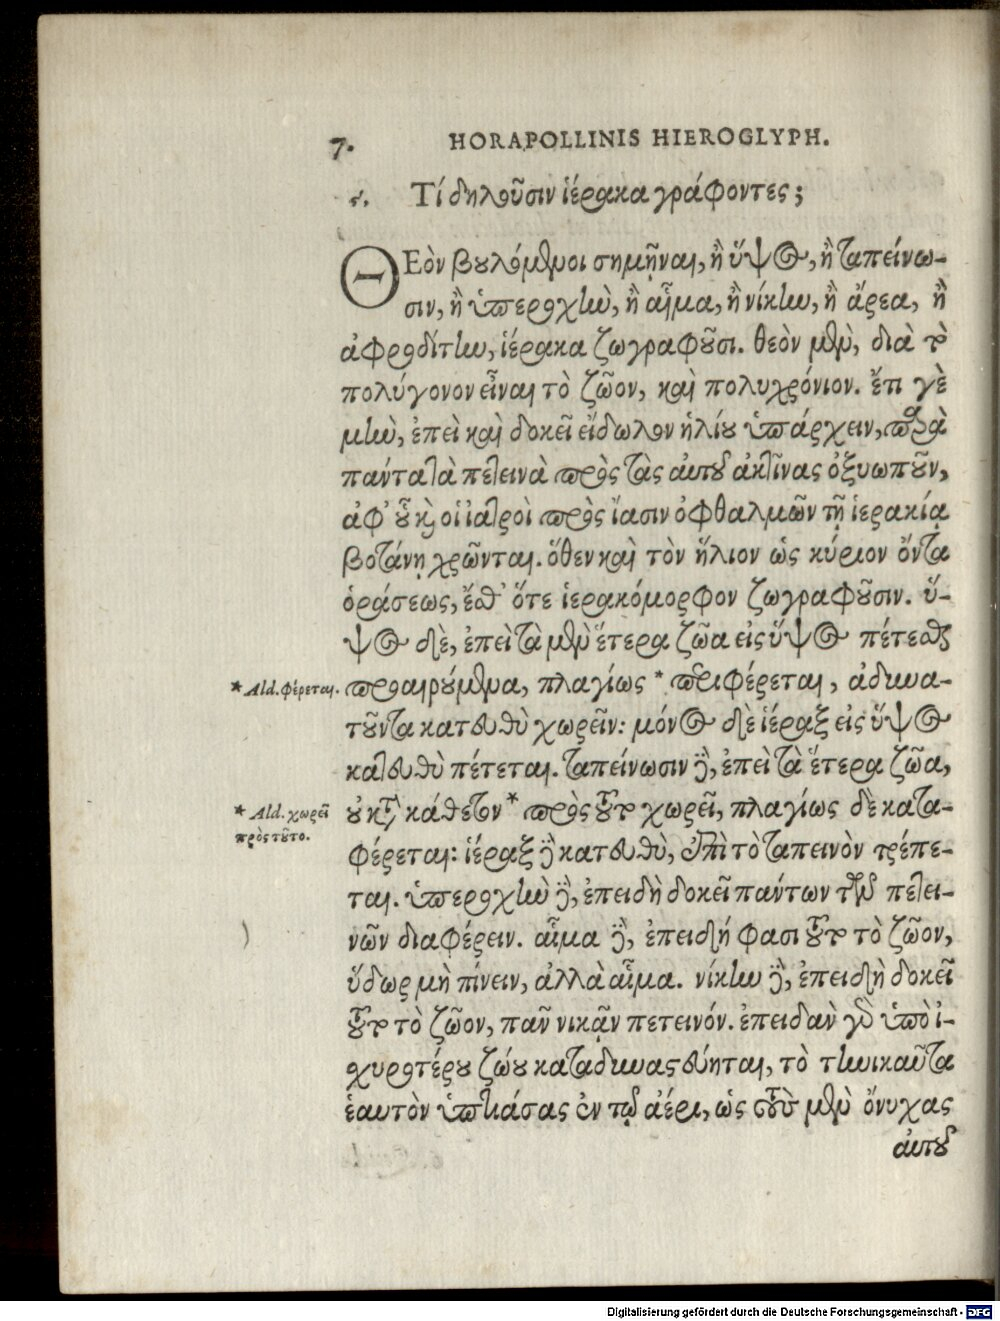 7. HORAPOLLINIS HIEROGLYPH.
ϛ'. Τί δηλοῦσιν ἱέρακα γράφοντες;
ΘΕὸν βουλόμενοι σημῆναι, ἢ ὕψος, ἢ ταπείνω-
σιν, ἢ ὑπεροχὴν, ἢ αἷμα, ἢ νίκην, ἢ ἄρεα, ἢ
ἀφροδίτην, ἱέρακα ζωγραφοῦσι. θεὸν μὲν, διὰ τὸ
πολύγονον εἶναι τὸ ζῶον, καὶ πολυχρόνιον. ἔτι γὲ
μὴν, ἐπεὶ καὶ δοκεῖ εἴδωλον ἡλίου ὑπάρχειν, παρὰ
πάντα τὰ πετεινὰ πρὸς τὰς αὐτοῦ ἀκτῖνας ὀξυωποῦν,
ἀφ' οὗ καὶ οἱ ἰατροὶ πρὸς ἴασιν ὀφθαλμῶν τῇ ἱερακίᾳ
βοτάνῃ χρῶνται. ὅθεν καὶ τὸν ἥλιον ὡς κύριον ὄντα
ὁράσεως, ἔσθ' ὅτε ἱερακόμορφον ζωγραφοῦσιν. ὕ-
ψος δὲ, ἐπεὶ τὰ μὲν ἕτερα ζῶα εἰς ὕψος πέτεσθαι
προαιρούμενα, πλαγίως * περιφέρεται, ἀδυνα-
τοῦντα κατευθὺ χωρεῖν: μόνος δὲ ἱέραξ εἰς ὕψος
κατευθὺ πέτεται. ταπείνωσιν δὲ, ἐπεὶ τὰ ἕτερα ζῶα,
οὐ κατὰ κάθετον * πρὸς τοῦτο χωρεῖ, πλαγίως δὲ κατα-
φέρεται: ἱέραξ δὲ κατευθὺ, ἐπὶ τὸ ταπεινὸν τρέπε-
ται. ὑπεροχὴν δὲ, ἐπειδὴ δοκεῖ πάντων τῶν πετει-
νῶν διαφέρειν. αἷμα δὲ, ἐπειδή φασι τοῦτο τὸ ζῶον,
ὕδωρ μὴ πίνειν, ἀλλὰ αἷμα. νίκην δὲ, ἐπειδὴ δοκεῖ
τοῦτο τὸ ζῶον, πᾶν νικᾷν πετεινόν. ἐπειδὰν γὰρ ὑπὸ ἰ-
χυροτέρου ζώου καταδυναστεύηται, τὸ τηνικαῦτα
ἑαυτὸν ὑπτιάσας ἐν τῷ ἀέρι, ὡς τοὺς μὲν ὄνυχας
αὐτοῦ
* Ald. φέρεται.
* Ald. χωρεῖ
πρὸς τοῦτο.
Digitalisierung gefördert durch die Deutsche Forschungsgemeinschaft - DFG